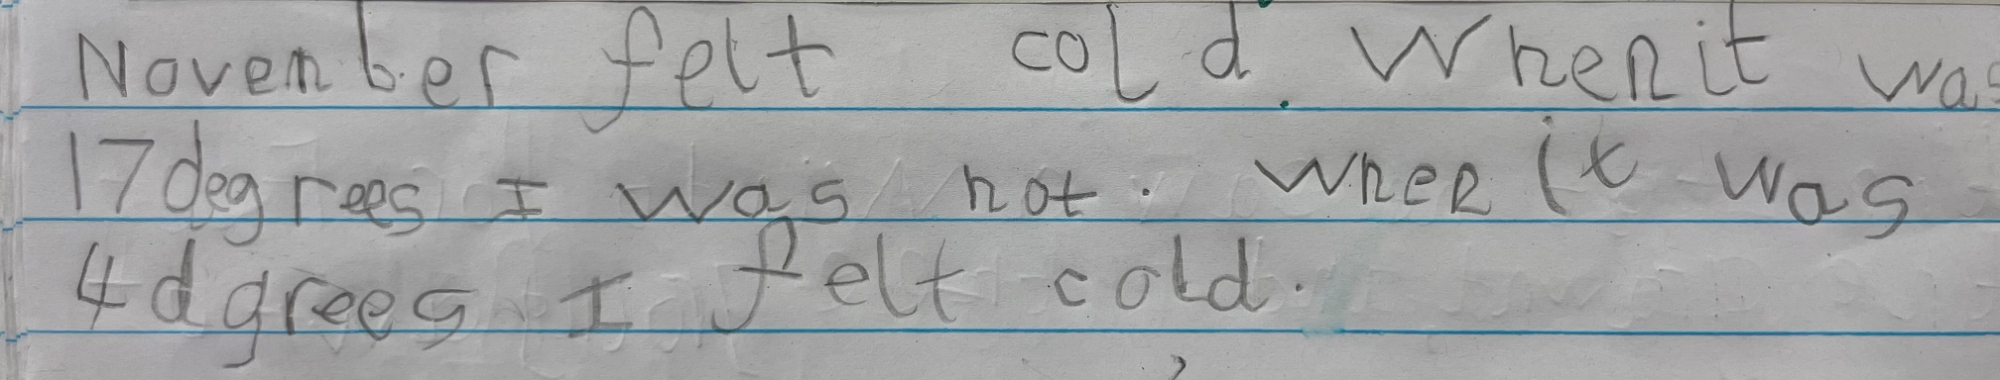 November felt cold. When it was
17 degrees I was not. when it was
4 dgrees I felt cold.